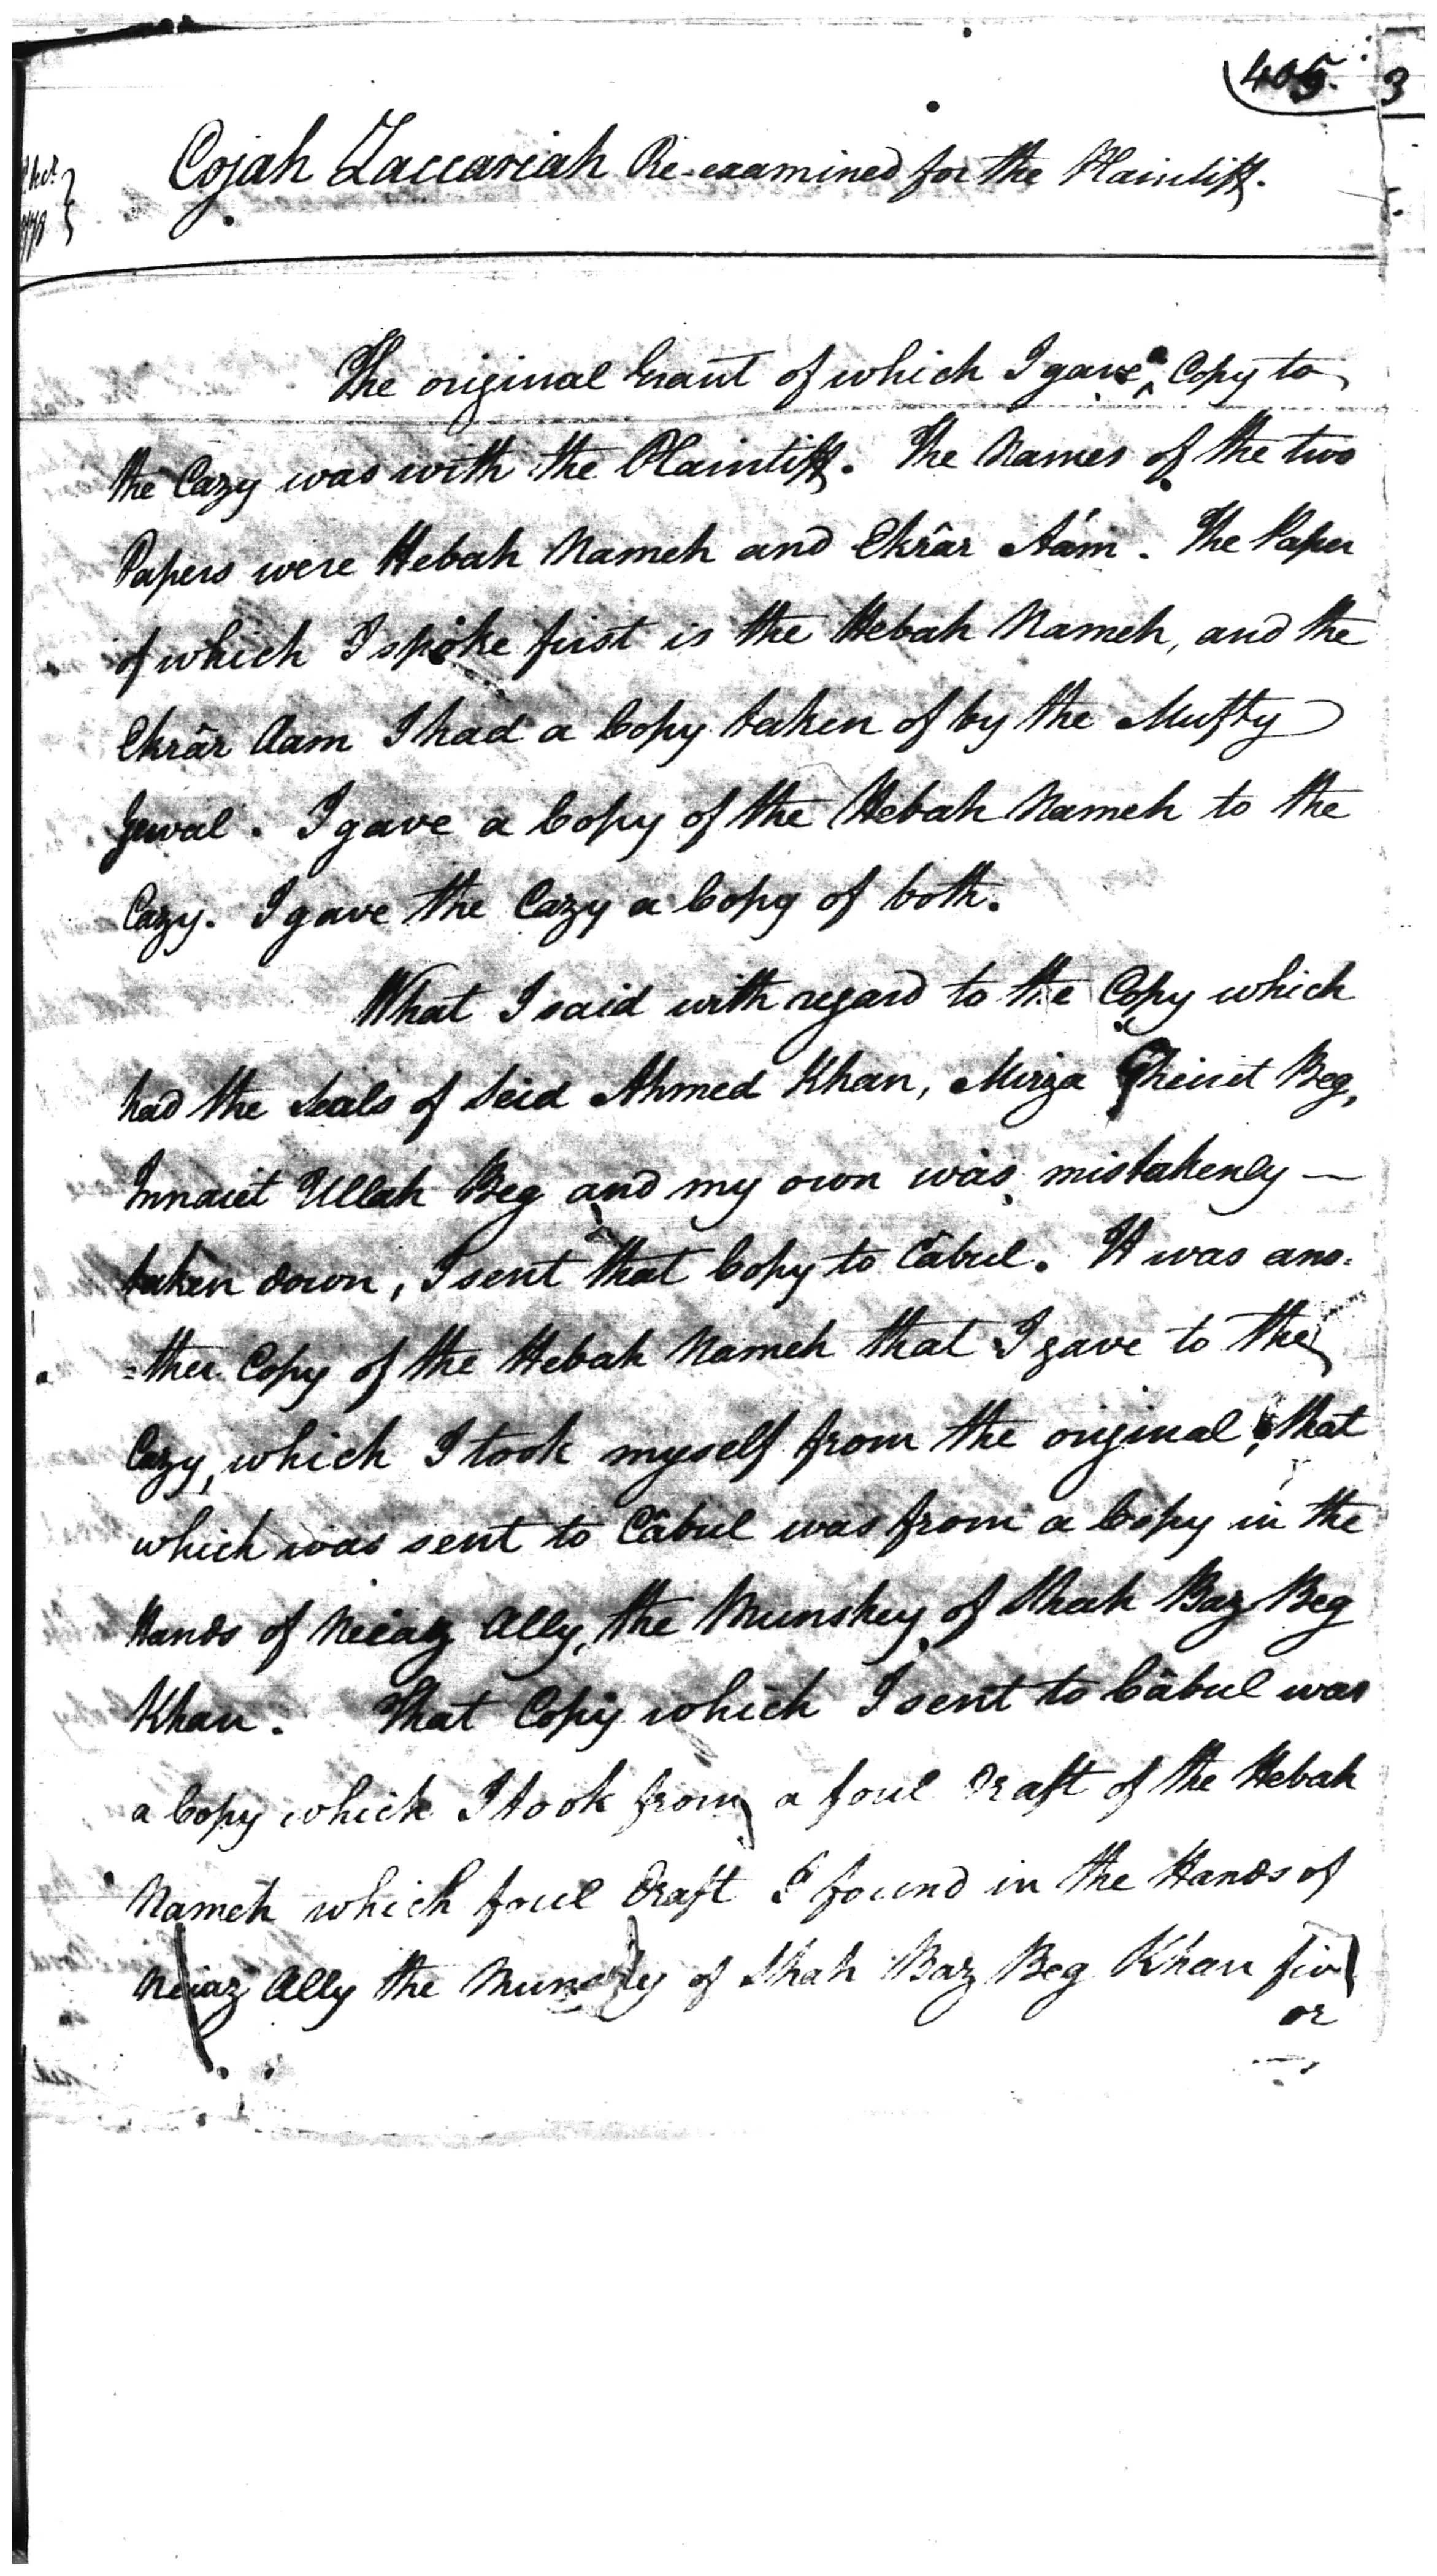 405.
Cojah Zaccariah Re-examined for the Plaintiff.
The original Grant of which I gave a Copy to
the Cazy was with the Plaintiff. The Names of the two
Papers were Hebah Nameh and Ekrâr Aám. The Paper
of which I spoke first is the Hebah Nameh, and the
Ekrâr Aam I had a Copy taken of by the Mufty
I gave a Copy of the Hebah Nameh to the
Cazy. I gave the Cazy a Copy of both.
What I said with regard to the Copy which
had the Seals of Seid Ahmed Khan, Mirza Beg,
Innaiet Ullah Beg and my own was mistakenly —
taken down, I sent that Copy to Câbul. It was ano=
=ther Copy of the Hebah Nameh that I gave to the
Cazy, which I took myself from the original, that
which was sent to Câbul was from a Copy in the
Hands of Neiaz Ally, the Munshey of Shah Baz Beg
Khan. That Copy which I sent to Câbul was
a Copy which I took from a foul Draft of the Hebah
Nameh which foul Draft I found in the Hands of
Neiaz Ally the Munshey of Shah Baz Beg Khan five
or